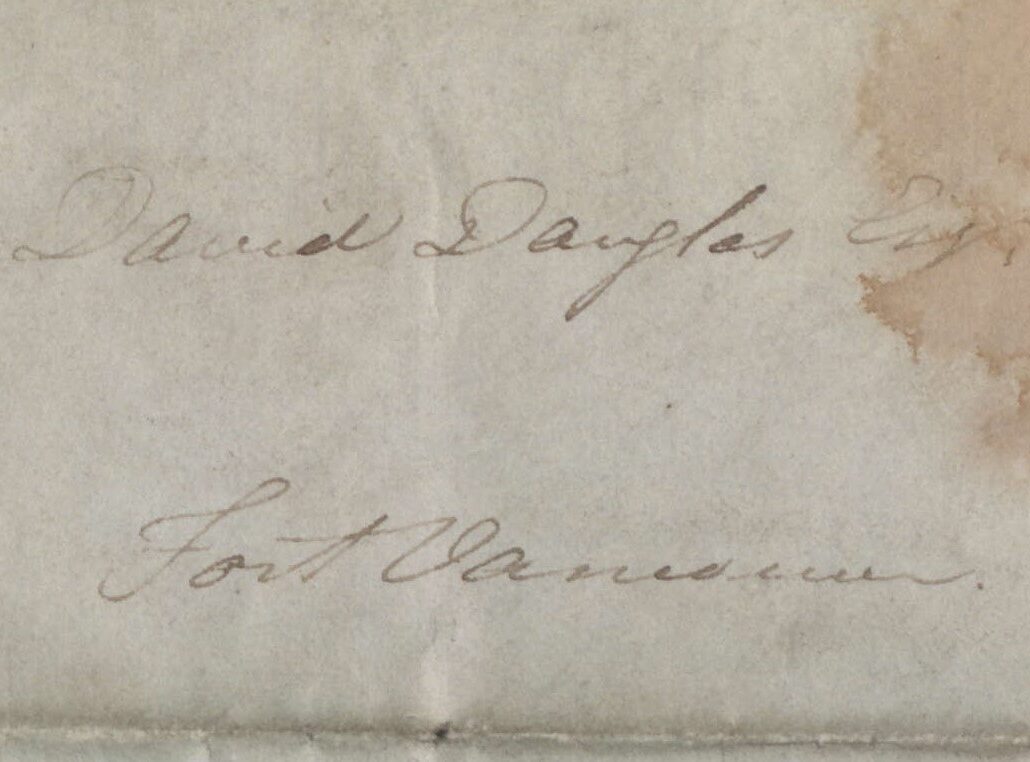 David Douglas Esq.
Fort Vancouver.